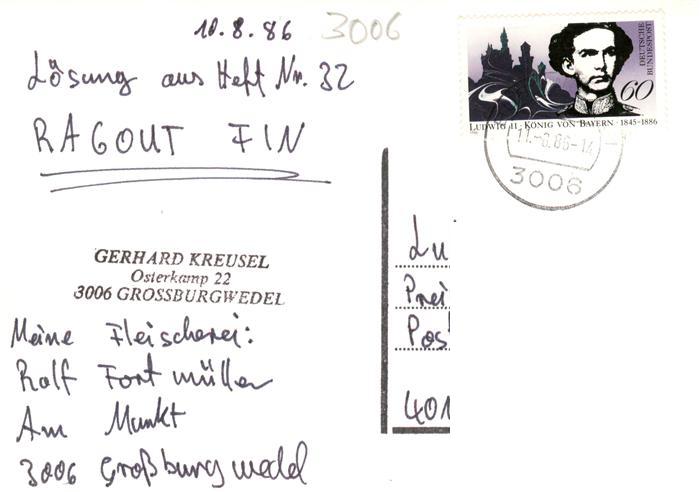 10.8.86 3006
Lösung aus Heft Nr. 32
RAGOUT FIN
DEUTSCHE
BUNDESPOST
60
LUDWIG II · KÖNIG VON BAYERN · 1845-1886
11.-8.86-14
3006
GERHARD KREUSEL
Osterkamp 22
3006 GROSSBURGWEDEL
Meine Fleischerei:
Ralf Fortmüller
Am Markt
3006 Großburgwedel
Lu
Prei
Post
401